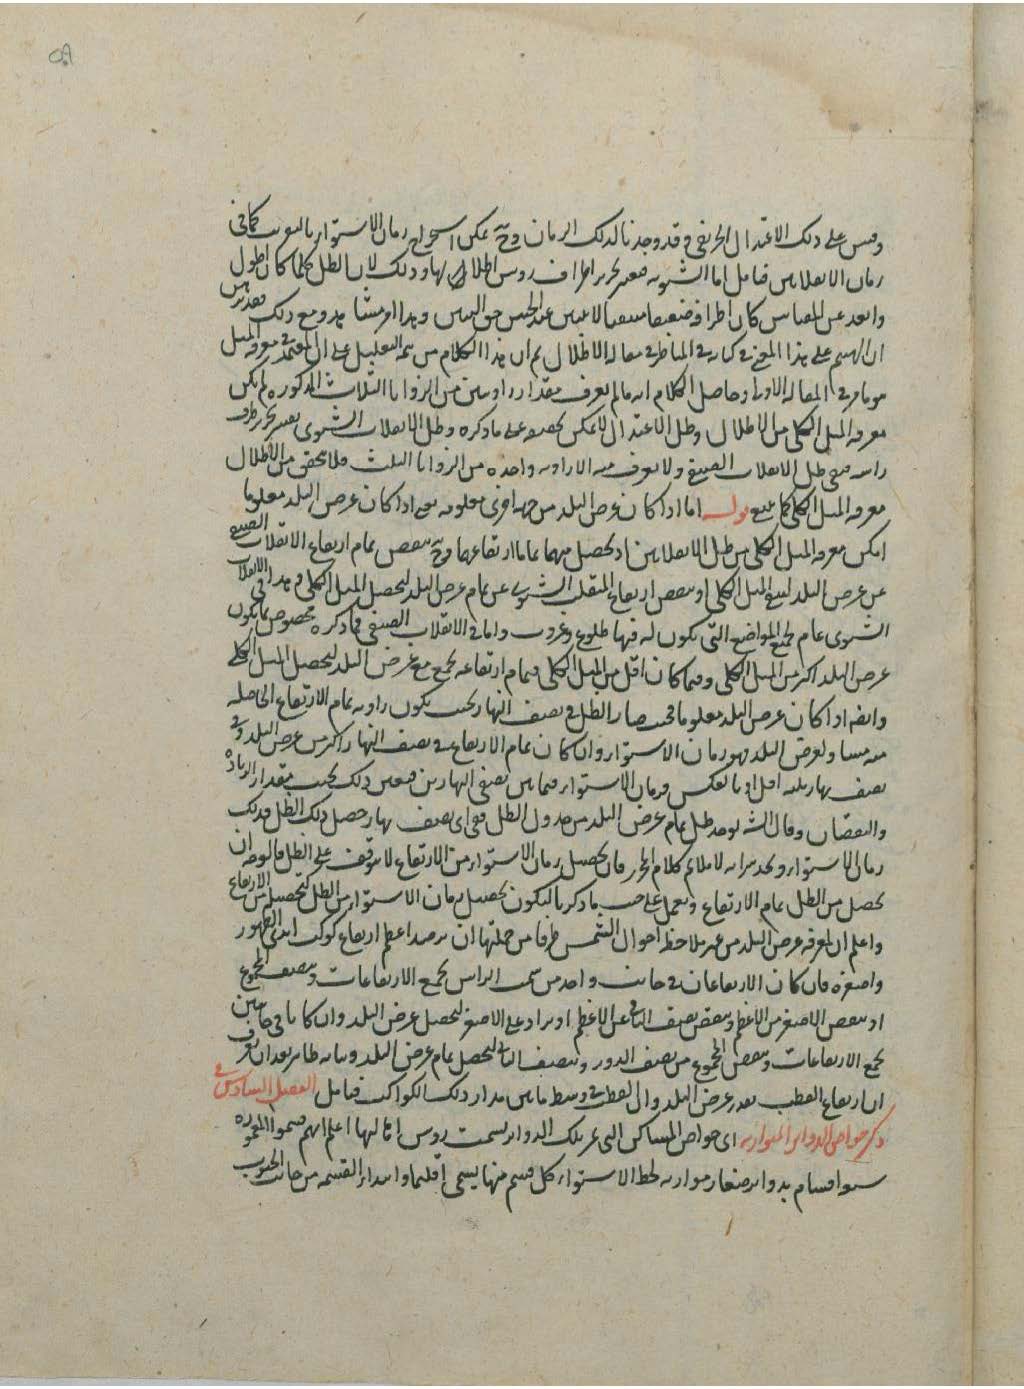 وقس على ذلك الاعتدال الخريفي وقد وجدنا لذلك الزمان وح يمكن استخراج زمان الاستواء بالتقريب كما في
زمان الانقلابين فتأمل اما الشتوية فيعسر تحرير اطراف رؤس اظلالها وذلك لان الظل كلما كان اطول
وابعد عن المقياس كان اطرافه ضعيفا عند الحس وهذا امر مشاهد ومع ذلك
ان على هذا المعنى في المناظر في مقالة الاظلال ثم ان هذا الكلام من تتمة التعليل على ان المعتمد في معرفة الميل
هو ما مر في المقالة الاولى وحاصل الكلام انه ما لم يعرف مقدار زاويتين من الزوايا الثلاث المذكورة لم يمكن
معرفة الميل الكلي من الاظلال وظل الاعتدال لا يمكن تحصيله على ما ذكره وظل الانقلاب الشتوي يعسر تحرير طرف
راسه فبقي ظل الانقلاب الصيفي ولا يعرف منه الا زاوية واحدة من الزوايا الثلث فلا يتحقق من الاظلال
معرفة الميل الكلي كما ينبغي قوله اما اذا كان عرض البلد من جهة اخرى معلومة يعني اذا كان عرض البلد معلوما
امكن معرفة الميل الكلي من ظل الانقلابين اذ يحصل منهما تماما ارتفاعهما وح ينقص تمام ارتفاع الانقلاب الصيفي
عن عرض البلد ليبقى الميل الكلي او ينقص ارتفاع المنقلب الشتوي عن تمام عرض البلد ليحصل الميل الكلي وهذا في الانقلاب
الشتوي عام لجميع المواضع التي يكون له فيها طلوع وغروب واما في الانقلاب الصيفي فما ذكره مخصوص بما يكون
عرض البلد اكثر من الميل الكلي وفيما كان اقل من الميل الكلي فتمام ارتفاعه يجمع مع عرض البلد ليحصل الميل الكلي
وايضا اذا كان عرض البلد معلوما فحيث صار الظل في نصف النهار بحيث يكون زاوية تمام الارتفاع الحاصلة
منه مساو لعرض البلد فهو زمان الاستواء وان كان تمام الارتفاع في نصف النهار اكثر من عرض البلد وفي
نصف نهار يليه اقل او بالعكس فزمان الاستواء فيما بين نصفي النهارين فيعين ذلك بحسب مقدار الزيادة
والنقصان وقال الش يوجد ظل تمام عرض البلد من جدول الظل ففي اي نصف نهار حصل ذلك الظل فذلك
زمان الاستواء ويخدشه انه لا يلائم كلام المحرر فان تحصيل زمان الاستواء من الارتفاع لا يتوقف على الظل فالوجه ان
يحصل من الظل تمام الارتفاع ويعمل على حسب ما ذكرنا ليكون تحصيل زمان الاستواء من الظل لتحصيله من الارتفاع
واعلم ان لمعرفة عرض البلد من غير ملاحظة احوال الشمس طرقا من جملتها ان يرصد اعظم ارتفاع كوكب ابدي الظهور
واصغره فان كان الارتفاعان في جانب واحد من سمت الراس يجمع الارتفاعات وينصف المجموع
او ينقص الاصغر من الاعظم وينقص نصف الباقي عن الاعظم او يزاد على الاصغر ليحصل عرض البلد وان كانا في جانبين
يجمع الارتفاعات وينقص المجموع من نصف الدور وينصف الباقي ليحصل تمام عرض البلد وبيانه ظاهر بعد ان يعرف
ان ارتفاع القطب بقدر عرض البلد وان القطب في وسط ما بين مدار ذلك الكواكب فتأمل الفصل السادس في
ذكر خواص الدوائر المتوازية اي خواص المساكن التي تمر تلك الدوائر بسمت رؤس اهاليها اعلم انهم قسموا المعمورة
سبعة اقسام بدوائر صغار موازية لخط الاستواء كل قسم منها يسمى اقليما وابتداء القسمة من جانب الجنوب